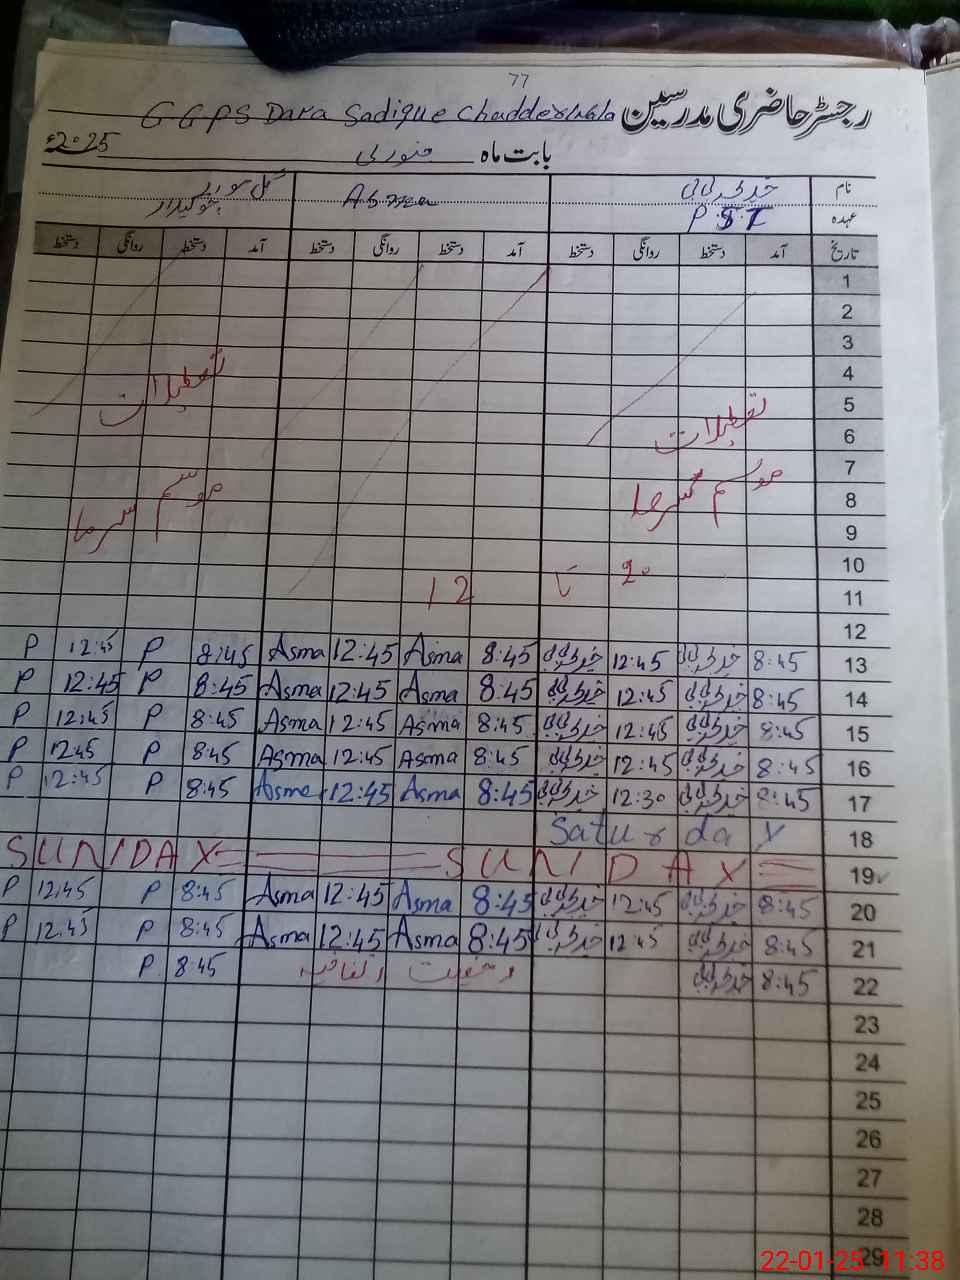 77
رجسٹر حاضری مدرسین G GPS Dara Sadique Chadder
بابت ماہ جنوری 2025
نام خدیجہ بی بی Asma گل
عہدہ P.S.T چوکیدار
تاریخ آمد دستخط روانگی دستخط آمد دستخط روانگی دستخط آمد دستخط روانگی دستخط
1
2
3
4
5 تعطیلات
6 تعطیلات
7
8 موسم سرما موسم سرما
9
10 20 تا 12
11
12
13 8:45 خدیجہ بی بی 12:45 خدیجہ بی بی 8:45 Asma 12:45 Asma 8:45 P 12:45 P
14 8:45 خدیجہ بی بی 12:45 خدیجہ بی بی 8:45 Asma 12:45 Asma 8:45 P 12:45 P
15 8:45 خدیجہ بی بی 12:45 خدیجہ بی بی 8:45 Asma 12:45 Asma 8:45 P 12:45 P
16 8:45 خدیجہ بی بی 12:45 خدیجہ بی بی 8:45 Asma 12:45 Asma 8:45 P 12:45 P
17 8:45 خدیجہ بی بی 12:30 خدیجہ بی بی 8:45 Asma 12:45 Asma 8:45 P 12:45 P
18 Saturday
19 SUNDAY SUNDAY
20 8:45 خدیجہ بی بی 12:45 خدیجہ بی بی 8:45 Asma 12:45 Asma 8:45 P 12:45 P
21 8:45 خدیجہ بی بی 12:45 خدیجہ بی بی 8:45 Asma 12:45 Asma 8:45 P 12:45 P
22 8:45 خدیجہ بی بی رخصت اتفاقیہ 8:45 P
23
24
25
26
27
28
29
22-01-25 11:38